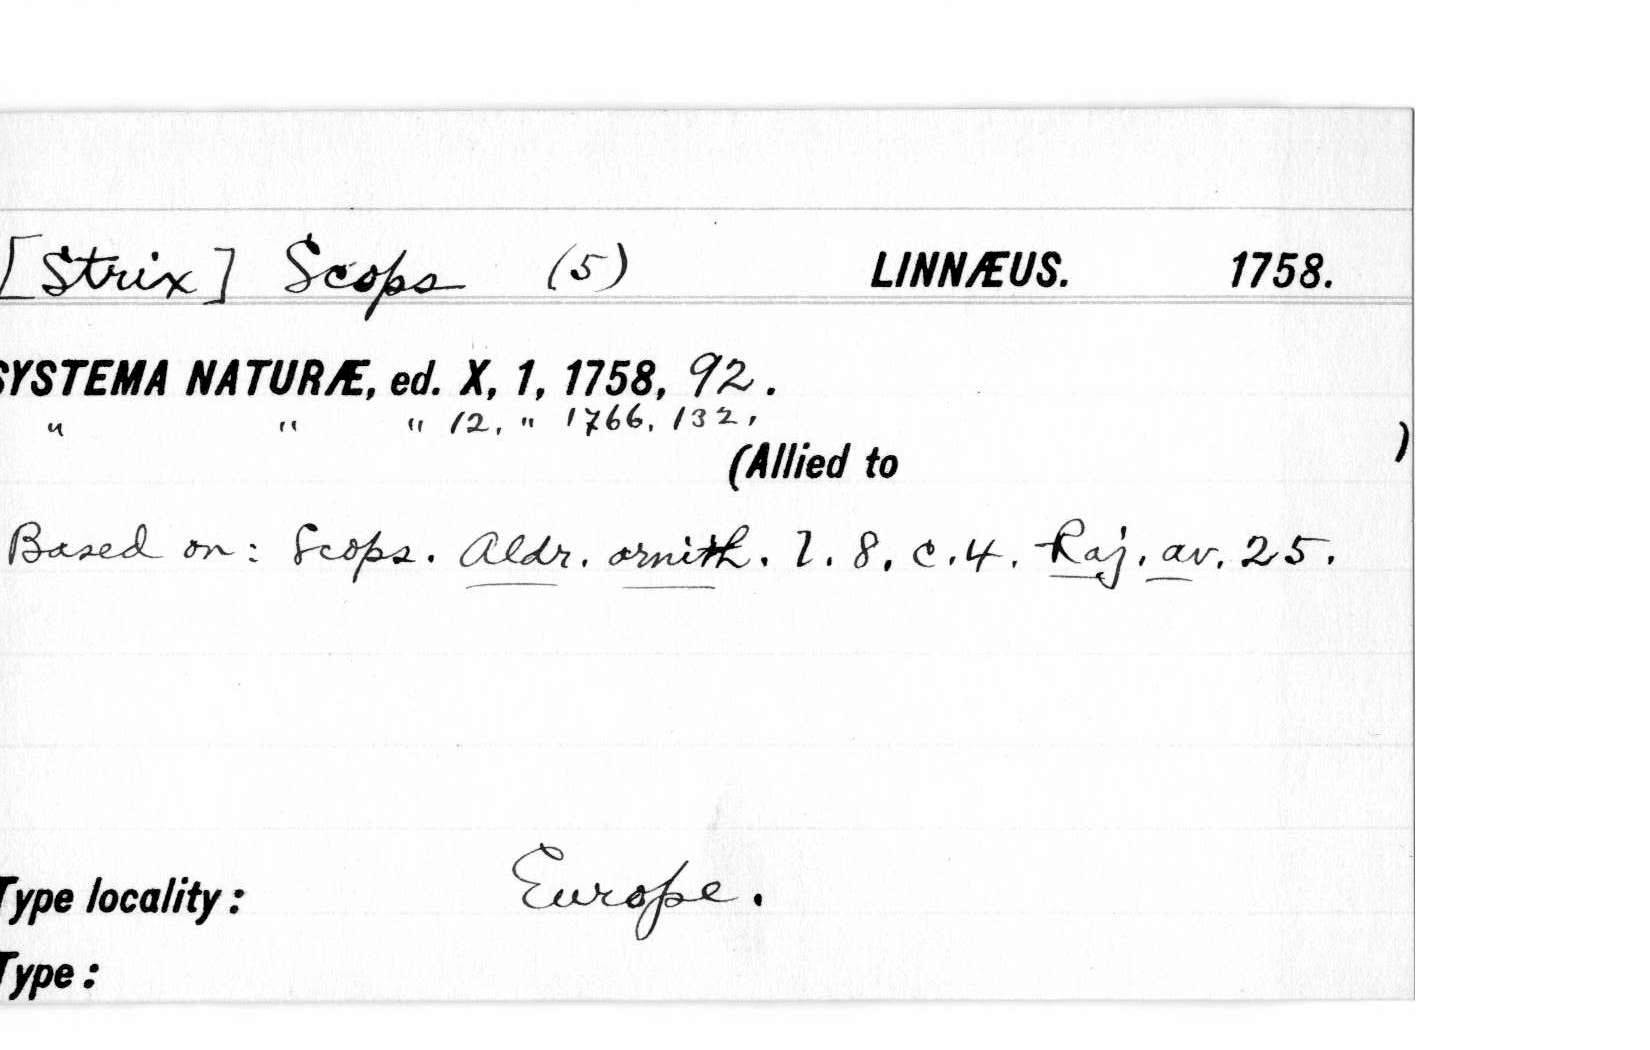 [Strix] Scops (5) LINNÆUS. 1758.
SYSTEMA NATURÆ, ed. X, 1, 1758, 92.
" " " 12, " 1766, 132,
(Allied to )
Based on: Scops. Aldr. ornith. l. 8, c. 4. Raj. av. 25.
Type locality: Europe.
Type: